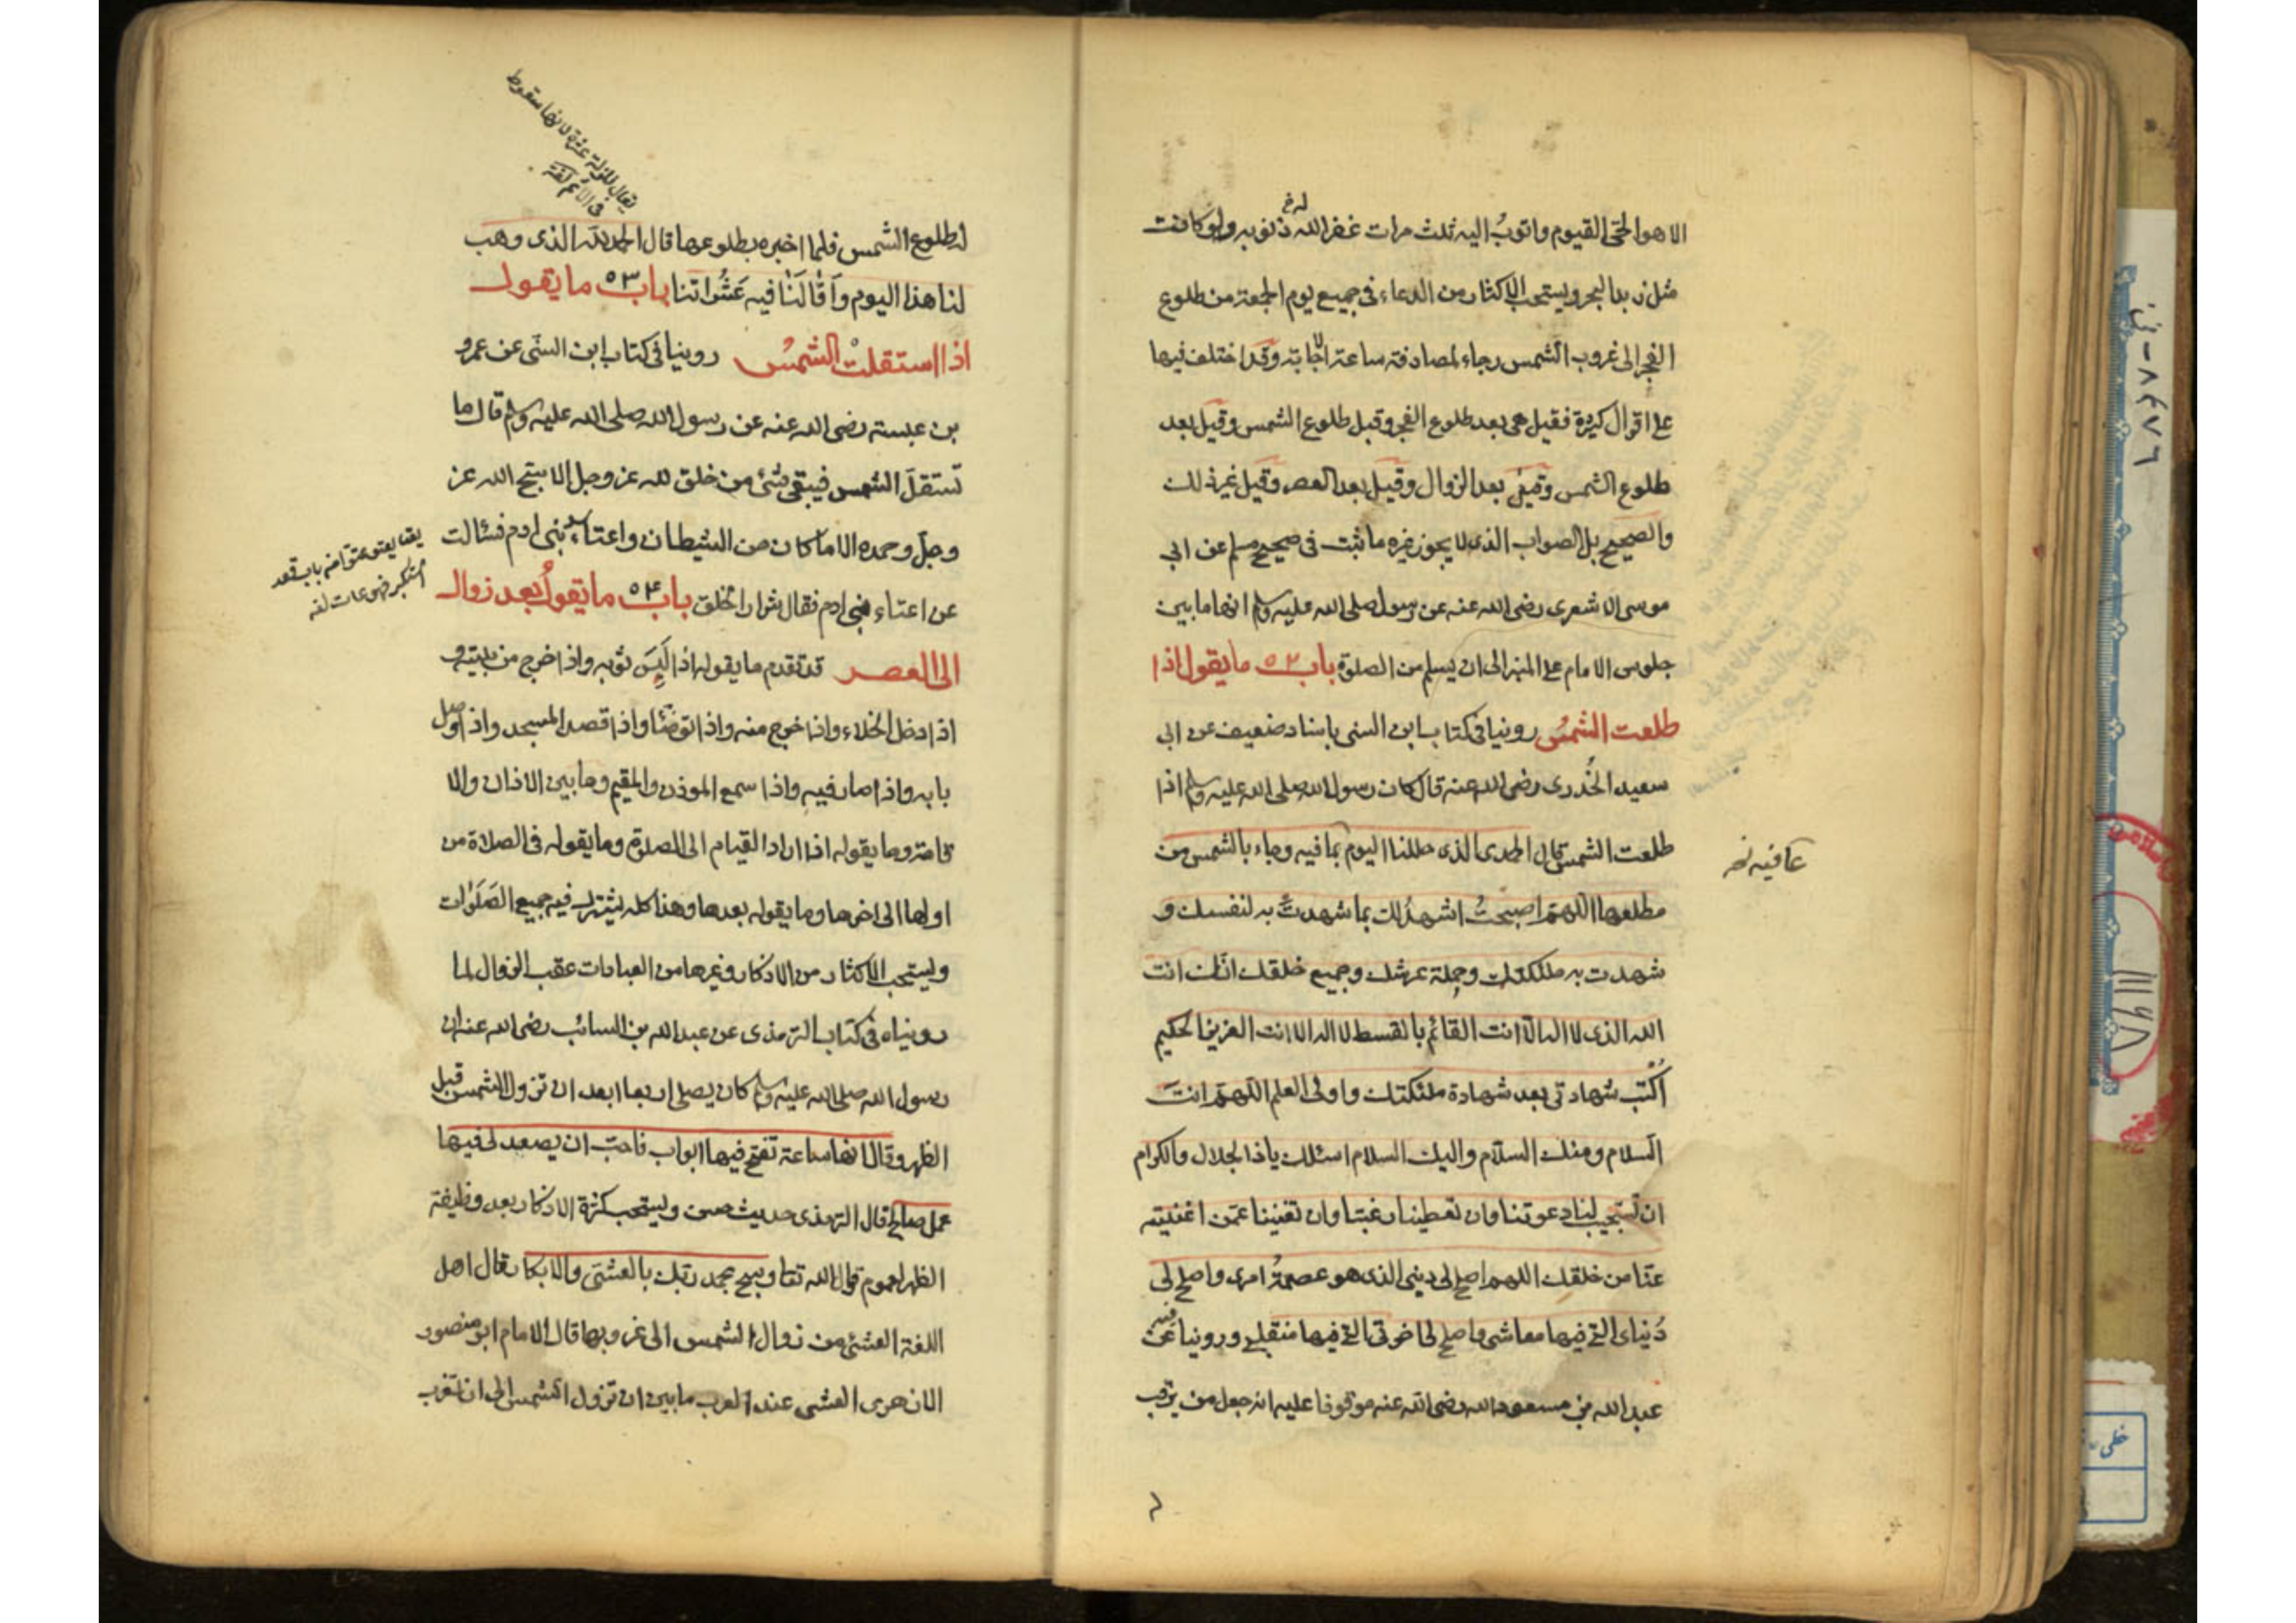 الا هو الحيّ القيوم واتوبُ اليه ثلث مرات غفر الله ذنوبه ولو كانت
له خ
مثل زبد البحر ويستحب الاكثار من الدعاء في جميع يوم الجمعة من طلوع
الفجر الى غروب الشمس رجاء لمصادفة ساعة الاجابة وقد اختلف فيها
على اقوال كثيرة فقيل هي بعد طلوع الفجر وقبل طلوع الشمس وقيل بعد
طلوع الشمس وقيل بعد الزوال وقيل بعد العصر وقيل غير ذلك
والصحيح بل الصواب الذي لا يجوز غيره ما ثبت في صحيح مسلم عن ابي
موسى الاشعري رضى الله عنه عن رسول صلى الله عليه وسلم انها ما بين
جلوس الامام على المنبر الى ان يسلم من الصلوة باب ٥٢ ما يقول اذا
طلعت الشمسُ روينا في كتاب ابن السني باسناد ضعيف عن ابي
سعيد الخُدري رضى الله عنه قال كان رسول الله صلى الله عليه وسلم اذا
طلعت الشمس قال الحمد الذى جللنا اليوم بما فيه وجاء بالشمس من
عافيته نخ
مطلعها اللهمّ اصبحتُ اشهدُ لك بما شهدتَ به لنفسك و
شهدت به ملئكتك وحملة عرشك وجميع خلقك انّك انت
الله الذى لا اله الّا انت القائم بالقسط لا اله الا انت العزيز الحكيم
اُكتب شهادتى بعد شهادة ملئكتك واولى العلم اللهمّ انتَ
السلام ومنك السلام واليك السلام اسئلك ياذا الجلال والاكرام
ان تستجيب لنا دعوتنا وان تعطينا رغبتنا وان تغنينا عمّن اغنيته
عنّا من خلقك اللهم اصلح لى دينى الذى هو عصمةُ امرى واصلح لى
دُنياى التي فيها معاشى واصلح لى اخرتى التي فيها منقلبي وروينا عن
عبد الله بن مسعود الله رضى الله عنه موقوفا عليه انه جعل من يرقب
يقال للزلة عثرة لانها سقوط
في الاثم لغة
لطلوع الشمس فلما اخبره بطلوعها قال الحمد لله الذى وهب
لنا هذا اليوم وَاَقَالَنَا فيه عَثَراتنا باب ٥٣ ما يقول
اذا استقلت الشمسُ روينا في كتاب ابن السنّي عن عمرو
بن عبسة رضى الله عنه عن رسول الله صلى الله عليه وسلم قال ما
تستقلّ الشمس فيبقى شئ من خلق لله عز وجل الا سبّح الله عز
وجلّ وحمده الا ما كان من الشيطان واعتاء بنى ادم فسئالت
عن اعتاء بنى ادم فقال شرار الخلق باب ٥٤ ما يقولُ بعد زوال
يقا يعتو عتوّا من باب قعد
استكبر فهو عات لغه
الى العصر قد تقدم ما يقوله اذا لَبِسَ ثوبه واذا خرج من بيته و
اذا دخل الخلاء واذا خرج منه واذا توضّأ واذا قصد المسجد واذا وصل
بابه واذا صار فيه واذا سمع الموذن والمقيم وما بين الاذان والا
قامة وما يقوله اذا اراد القيام الى الصلوة وما يقوله فى الصلاة من
اولها الى اخرها وما يقوله بعدها وهذا كله يشترك فيه جميع الصَلَوَات
ويستحب الاكثار من الاذكار وغيرها من العبادات عقب الزوال لما
رويناه في كتاب الترمذى عن عبد الله بن السائب رضى الله عنه ان
رسول الله صلى الله عليه وسلم كان يصلى اربعا ابعد ان تزول الشمس قبل
الظهر وقال انها ساعة تفتح فيها ابواب فاحبّ ان يصعد لى فيها
عمل صالح قال الترمذى حديث حسن ويستحب كثرة الاذكار بعد وظيفة
الظهر لعموم قول الله تعا وسبح بحمد ربك بالعشىّ والابكار قال اهل
اللغة العشىّ من زوال الشمس الى غروبها قال الامام ابو منصور
الازهرى العشى عند العرب ما بين ان تزول الشمس الى ان تغرب
٨٤٧٦ - ن
١١١٦٨
خطى